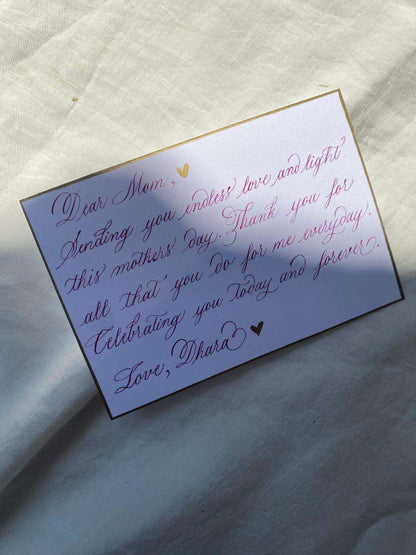 Dear Mom,
Sending you endless love and light
this mothers day. Thank you for
all that you do for me everyday.
Celebrating you today and forever.
Love, Dhara